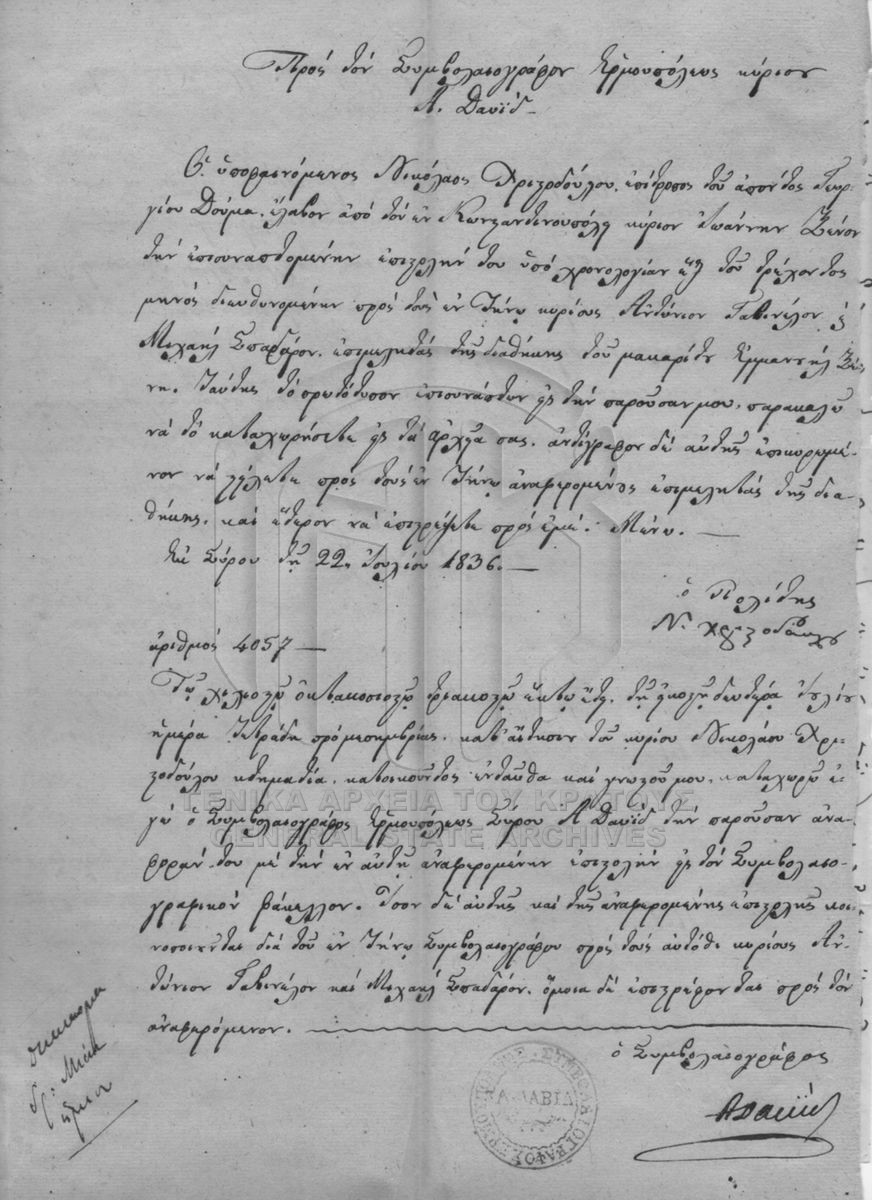 Πρός τόν Συμβολαιογράφον Ἑρμουπόλεως κύριον
Α. Δαυΐδ
Ὁ ὑποφαινόμενος Νικόλαος Χριστοδούλου, ἐπίτροπος τοῦ ἀπόντος Γεωρ-
γίου Δούμα, ἔλαβον ἀπό τόν ἐν Κωνσταντινουπόλῃ κύριον Ἰωάννην Ξένον
τήν ἐπισυναπτομένην ἐπιστολήν του ὑπό χρονολογίαν τοῦ τρέχοντος
μηνός διευθυνομένην πρός τούς ἐν Τήνῳ κυρίους Ἀντώνιον Γαβινέλον ἐ
Μιχαήλ Σπαδάρον, ἐπιμελητάς τῆς διαθήκης τοῦ μακαρίτου Ἐμμανουήλ Ξέ-
νη. Ταύτης τό πρωτότυπον ἐπισυνάπτων εἰς τήν παροῦσαν μου, παρακαλῶ
νά τό καταχωρήσετε εἰς τά ἀρχεῖα σας, ἀντίγραφον δέ αὐτῆς ἐπικυρωμέ-
νον νά στείλετε πρός τούς ἐν Τήνῳ ἀναφερομένους ἐπιμελητάς τῆς δια-
θήκης, καί ἕτερον νά ἐπιστρέψετε πρός ἐμέ. Μένω. —
Ἐν Σύρου τῇ 22, Ἰουλίου 1836. —
ὁ Πολίτης
Ν. Χριστοδούλου
ἀριθμός 4057 —
Τῷ χιλιοστῷ ὀκτακοσιοστῷ τριακοστῷ ἕκτῳ ἔτει, τῇ εἰκοστῇ δευτέρᾳ Ἰουλίου
ἡμέρᾳ Τετράδῃ πρό μεσημβρίας, κατ' αἴτησιν τοῦ κυρίου Νικολάου Χρι-
στοδούλου κτηματία, κατοικοῦντος ἐνταῦθα καί γνωστοῦ μου, καταχωρῶ ἐ-
γώ ὁ Συμβολαιογράφος Ἑρμουπόλεως Σύρου Α Δαυΐδ τήν παροῦσαν ἀνα-
φοράν του μέ τήν ἐν αὐτῇ ἀναφερομένην ἐπιστολήν εἰς τόν Συμβολαιο-
γραφικόν φάκελλον. Ἴσον δέ αὐτῆς καί τῆς ἀναφερομένης ἐπιστολῆς κοι-
νοποιεῖται διά τοῦ ἐν Τήνῳ Συμβολαιογράφου πρός τούς αὐτόθι κυρίους Ἀν-
τώνιον Γαβινέλον καί Μιχαήλ Σπαδάρον, ὅμοια δέ ἐπιστρέφονται πρός τόν
ἀναφερόμενον.
ὁ Συμβολαιογράφος
ΑΔαυΐδ
δικαίωμα
δρ: Μία
ἥμισυ
Α. ΔΑΒΙΔ
ΓΕΝΙΚΑ ΑΡΧΕΙΑ ΤΟΥ ΚΡΑΤΟΥΣ
GENERAL STATE ARCHIVES